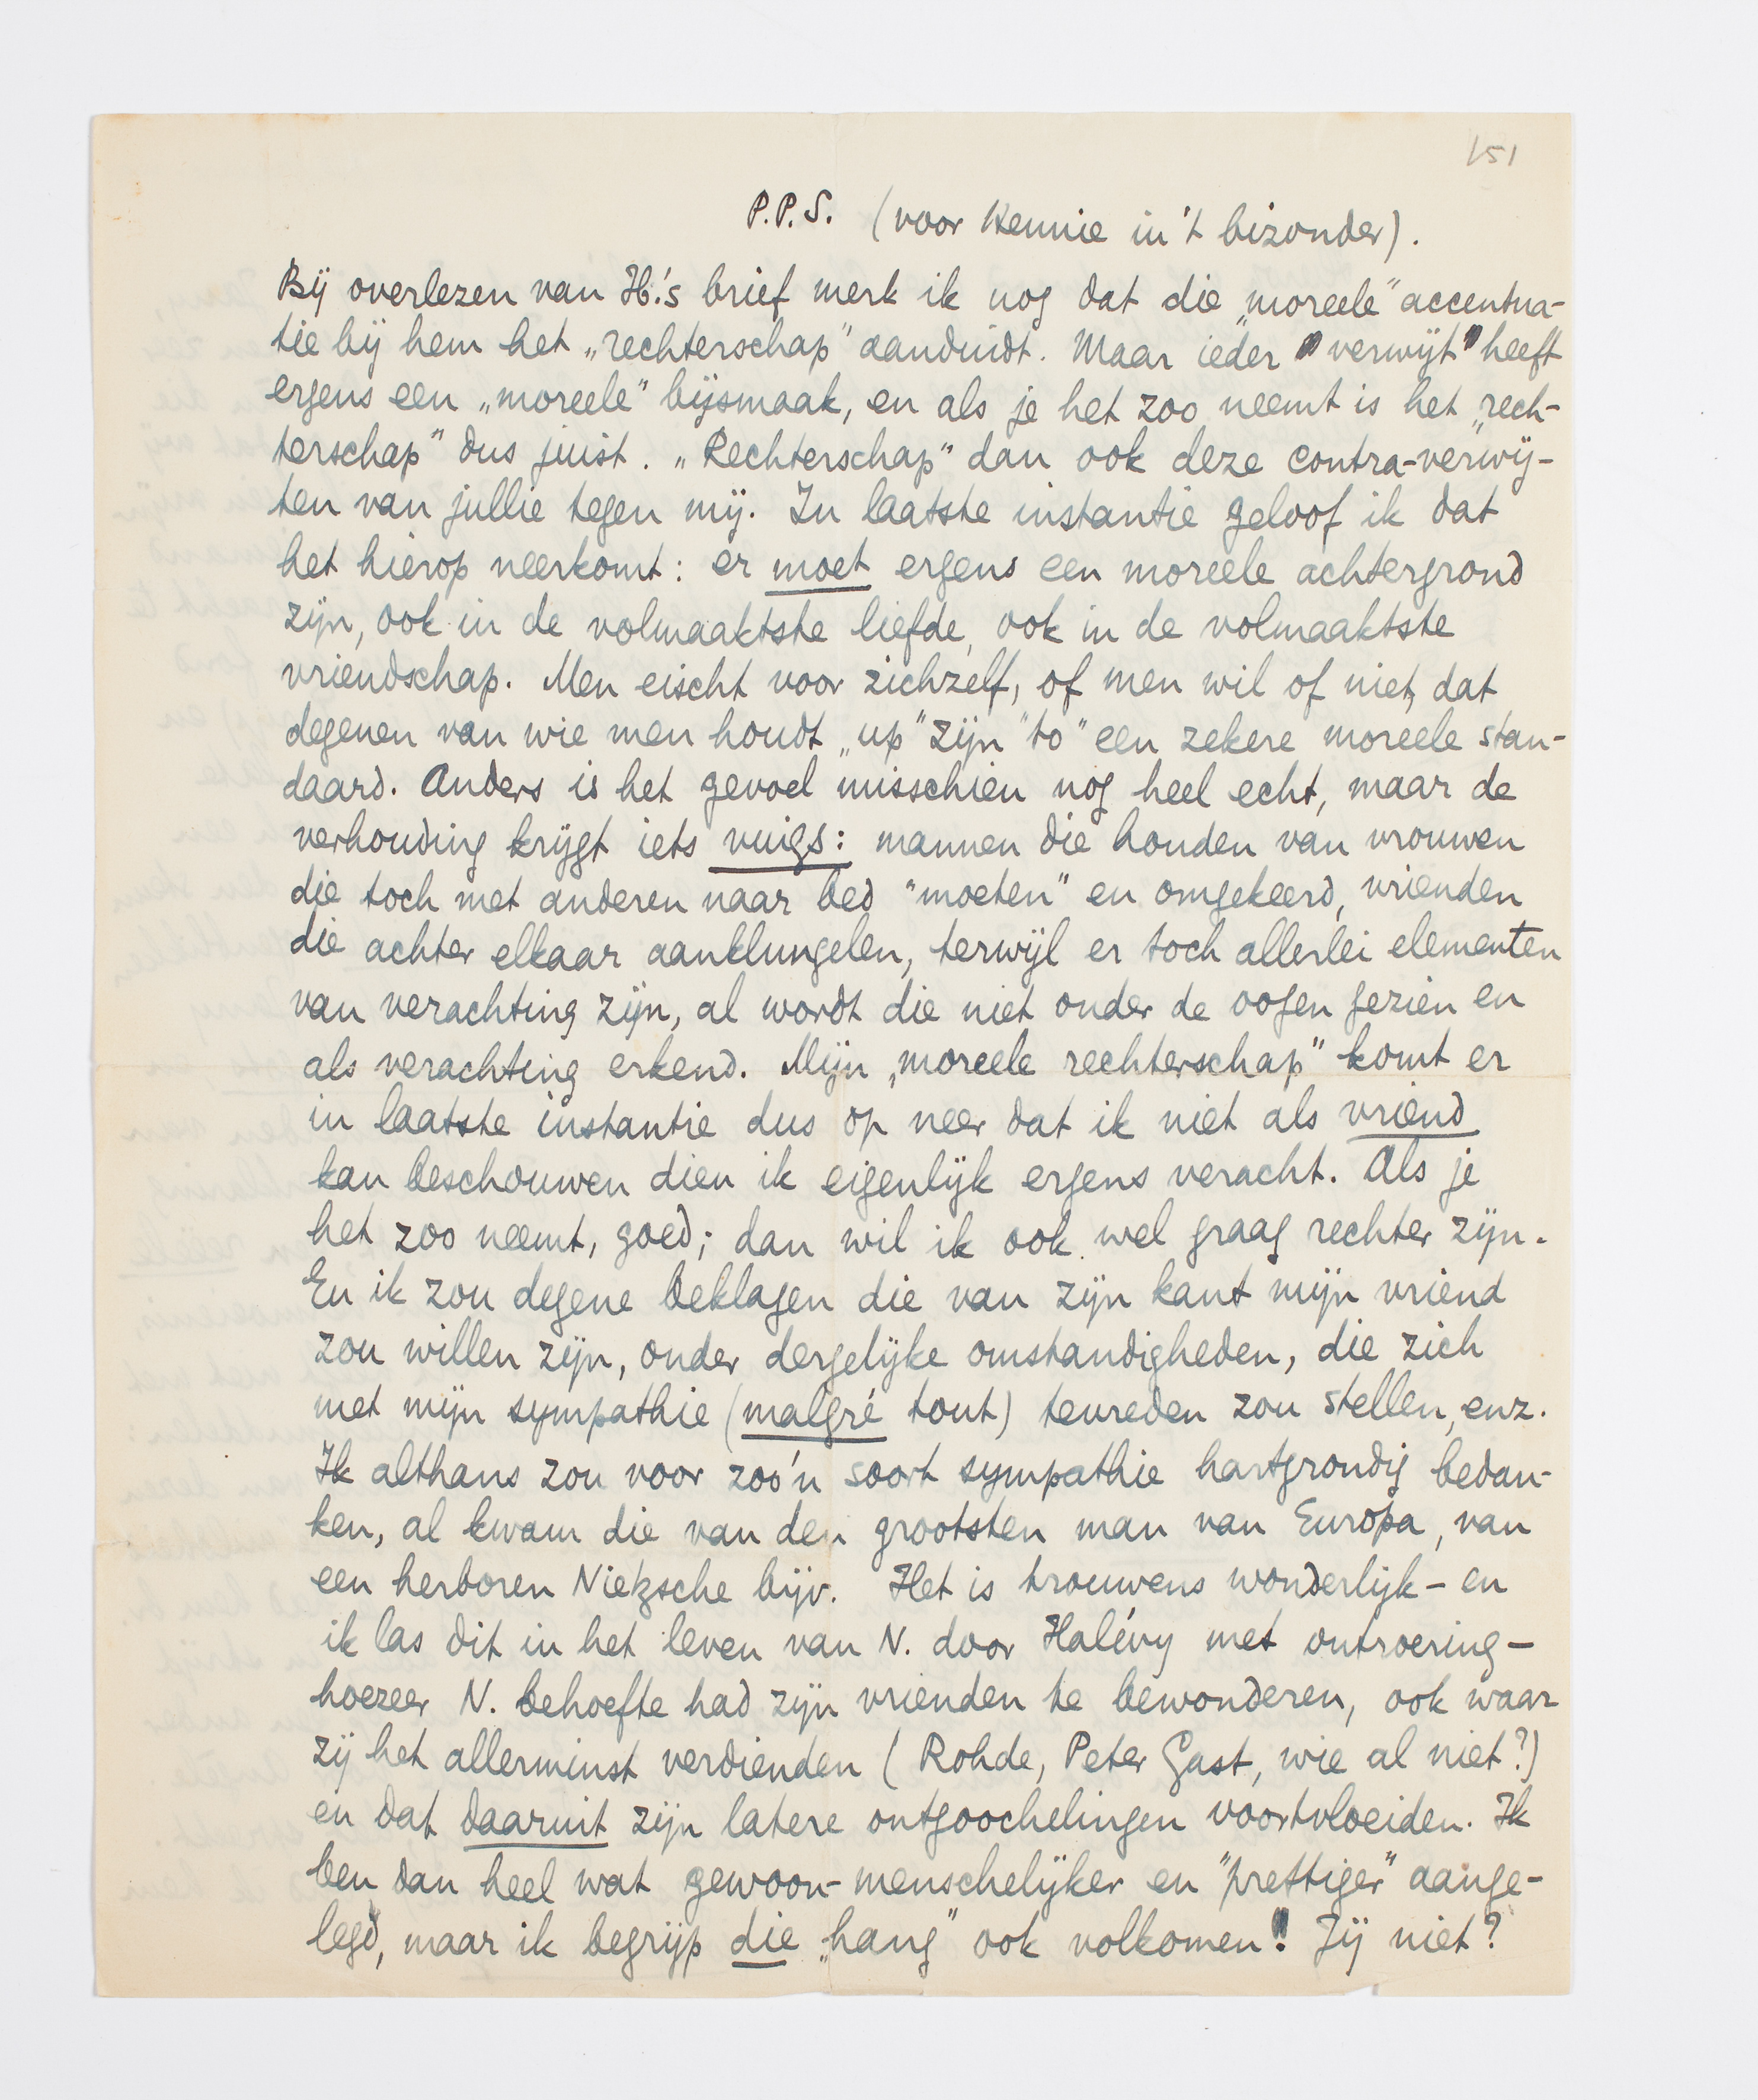 151
P.P.S. (voor Hennie in 't bizonder).
Bij overlezen van H.'s brief merk ik nog dat die „moreele" accentua-
tie bij hem het „rechterschap" aanduidt. Maar ieder verwijt heeft
ergens een „moreele" bijsmaak, en als je het zoo neemt is het „rech-
terschap" dus juist. „Rechterschap" dan ook deze contra-verwij-
ten van jullie tegen mij. In laatste instantie geloof ik dat
het hierop neerkomt: er moet ergens een moreele achtergrond
zijn, ook in de volmaaktste liefde, ook in de volmaaktste
vriendschap. Men eischt voor zichzelf, of men wil of niet, dat
degenen van wie men houdt „up" zijn "to" een zekere moreele stan-
daard. Anders is het gevoel misschien nog heel echt, maar de
verhouding krijgt iets vuigs: mannen die houden van vrouwen
die toch met anderen naar bed "moeten" en omgekeerd, vrienden
die achter elkaar aanklungelen, terwijl er toch allerlei elementen
van verachting zijn, al wordt die niet onder de oogen gezien en
als verachting erkend. Mijn „moreele rechterschap" komt er
in laatste instantie dus op neer dat ik niet als vriend
kan beschouwen dien ik eigenlijk ergens veracht. Als je
het zoo neemt, goed; dan wil ik ook wel graag rechter zijn.
En ik zou degene beklagen die van zijn kant mijn vriend
zou willen zijn, onder dergelijke omstandigheden, die zich
met mijn sympathie (malgré tout) tevreden zou stellen, enz.
Ik althans zou voor zoo'n soort sympathie hartgrondig bedan-
ken, al kwam die van den grootsten man van Europa, van
een herboren Nietzsche bijv. Het is trouwens wonderlijk – en
ik las dit in het leven van N. door Halévy met ontroering –
hoezeer N. behoefte had zijn vrienden te bewonderen, ook waar
zij het allerminst verdienden (Rohde, Peter Gast, wie al niet?)
en dat daaruit zijn latere ontgoochelingen voortvloeiden. Ik
ben dan heel wat gewoon-menschelijker en "prettiger" aange-
legd, maar ik begrijp die „hang" ook volkomen! Jij niet?